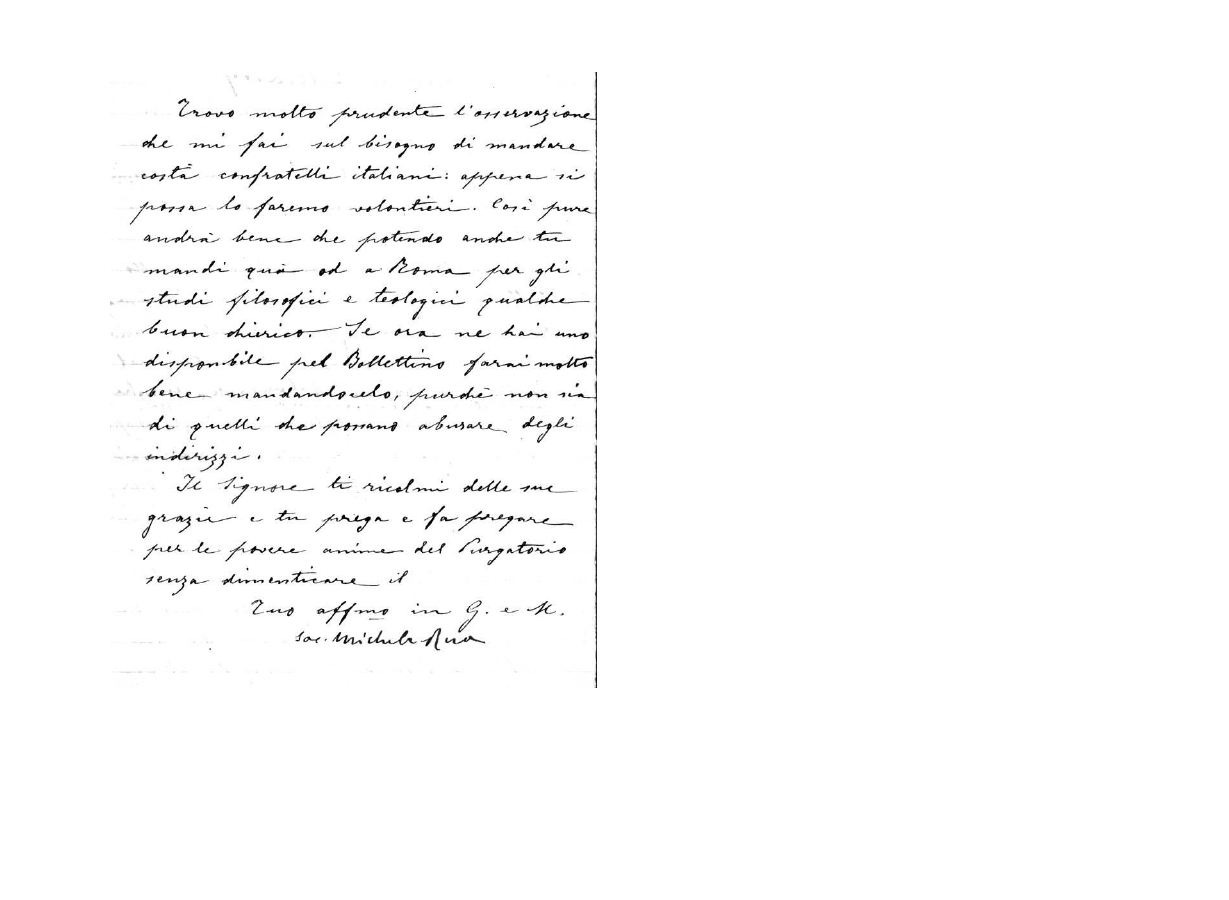 Trovo molto prudente l'osservazione
che mi fai sul bisogno di mandare
costà confratelli italiani: appena si
possa lo faremo volontieri. Così pure
andrà bene che potendo anche tu
mandi quà od a Roma per gli
studi filosofici e teologici qualche
buon chierico. Se ora ne hai uno
disponbile pel Bollettino farai molto
bene mandandocelo, purchè non sia
di quelli che possano abusare degli
indirizzi.
Il Signore ti ricolmi delle sue
grazie e tu prega e fa pregare
per le povere anime del Purgatorio
senza dimenticare il
Tuo affmo in G. e M.
Sac. Michele Rua